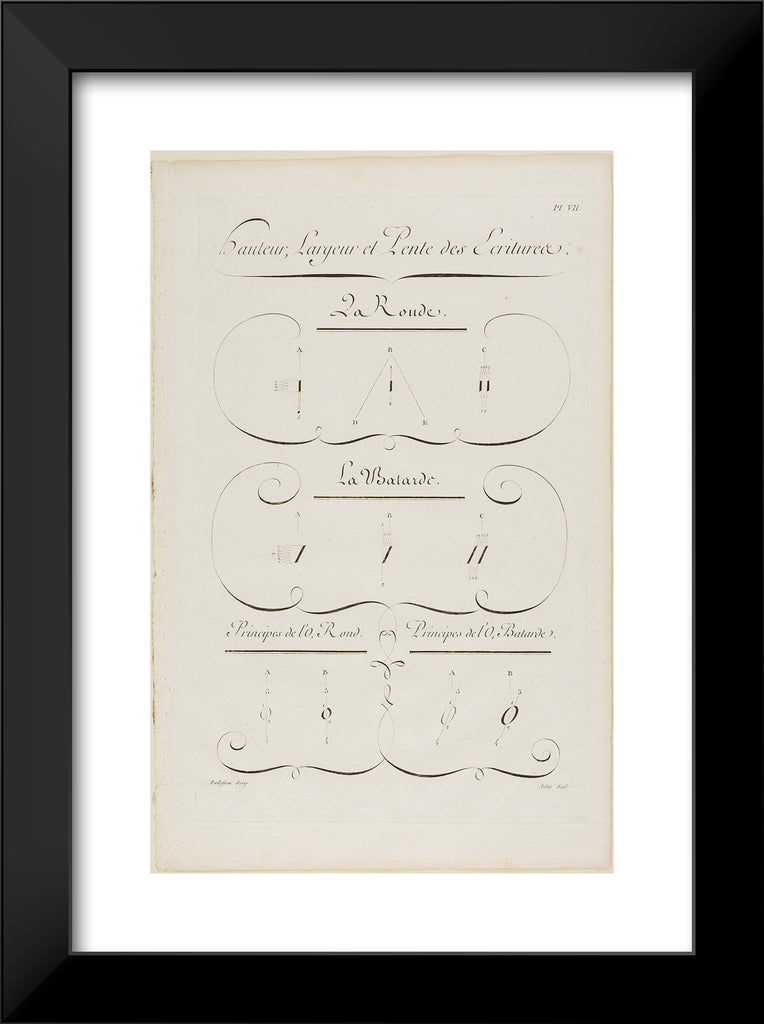 Pl. VII.
Hauteur, Largeur et Pente des Ecritures.
La Ronde.
A B C
D E
La Batarde.
A B C
Principes de l'O, Rond. Principes de l'O, Batarde.
A B A B
5 5 5 5
Scrip. Aubin Sculp.